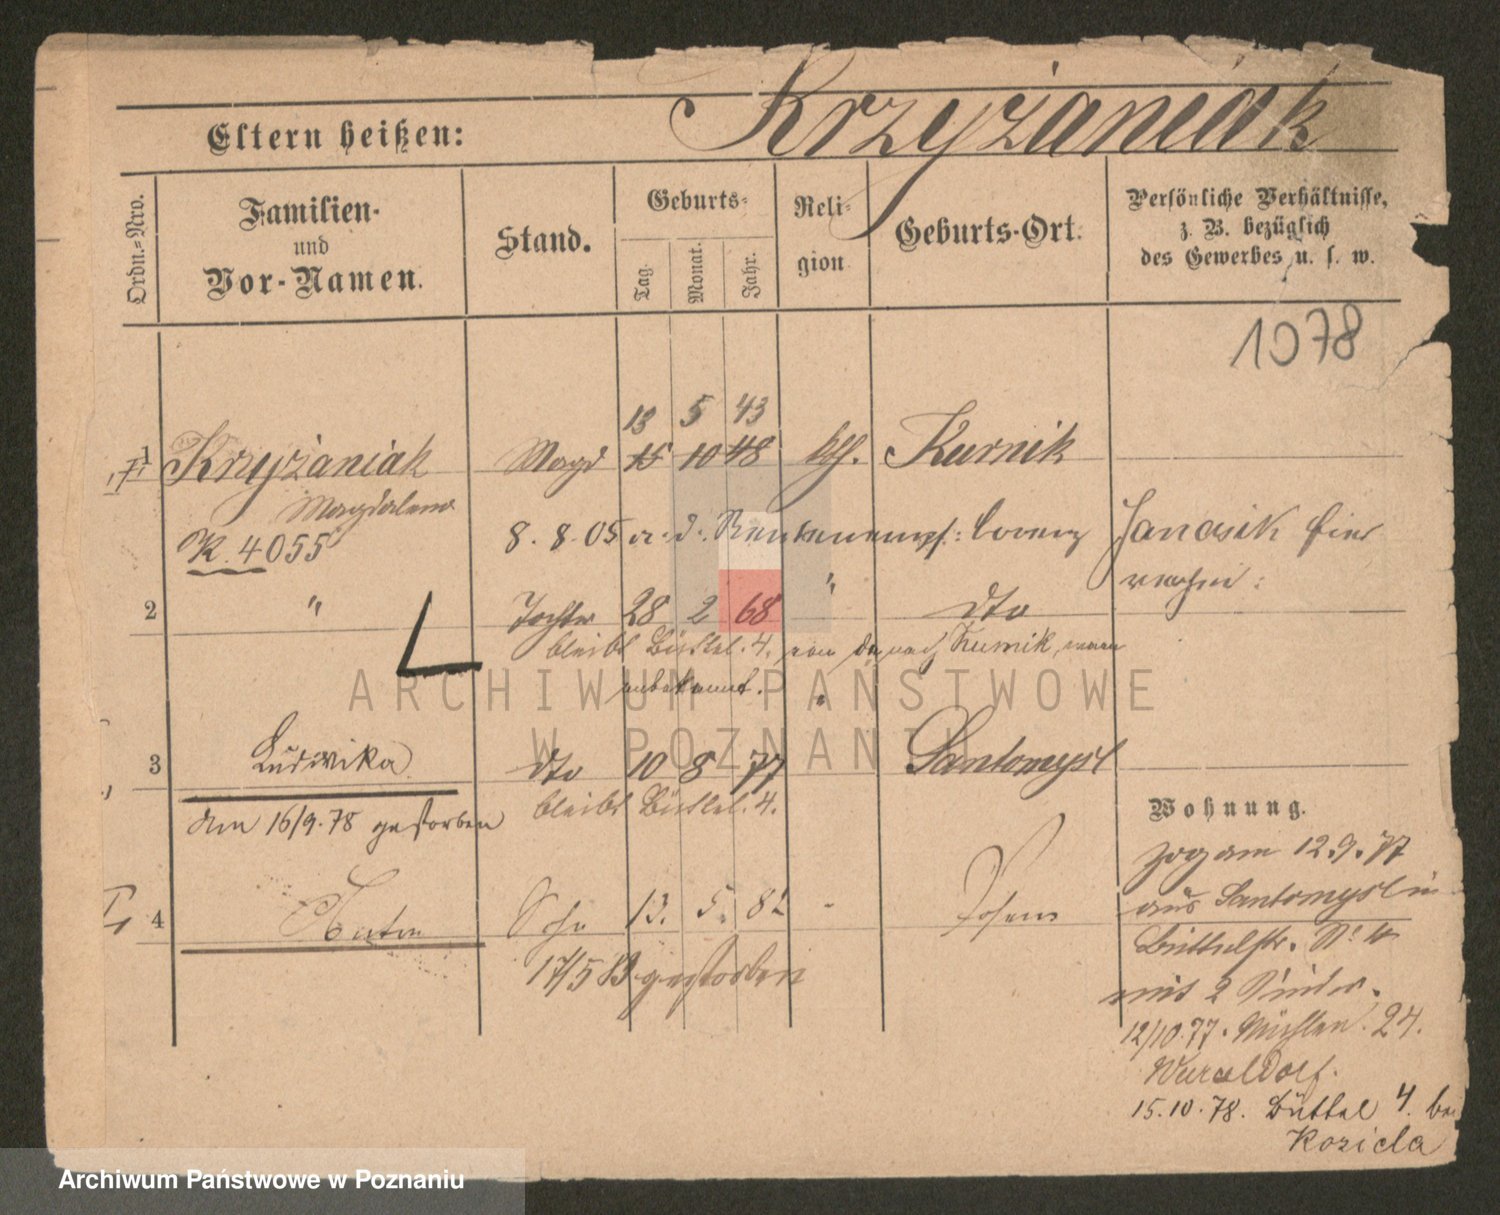 Krzyżaniak
Eltern heißen:
Ordn.=Nro.
Familien-
und
Vor-Namen.
Stand.
Geburts-
Tag.
Monat.
Jahr.
Reli-
gion
Geburts-Ort.
Persönliche Verhältnisse,
z. B. bezüglich
des Gewerbes u. s. w.
1078
13 5 43
1 Krzyżaniak Magd 15 10 48 kth. Kurnik
Magdalena
K. 4055
8. 8. 05 a. d. Rentenempf: Lorenz Janasik hier
2 " Tochter 28 2 68 " dto
bleibt Büttel. 4. von da nach Kurnik, wann
unbekannt. "
3 Ludwika dto 10 8 77 Santomysl
bleibt Büttel. 4.
den 16/9. 78 gestorben
4 Anton Sohn 13. 5. 82 " Posen
17/5 83 gestorben
Wohnung.
zog am 12.9.77
aus Santomysl in
Büttelstr. No 4
mit 2 Kinder.
12/10.77. Mühlen. 24.
Waraldorf.
15.10.78. Büttel 4. bei
Kozicla
ARCHIWUM PAŃSTWOWE
W POZNANIU
Archiwum Państwowe w Poznaniu